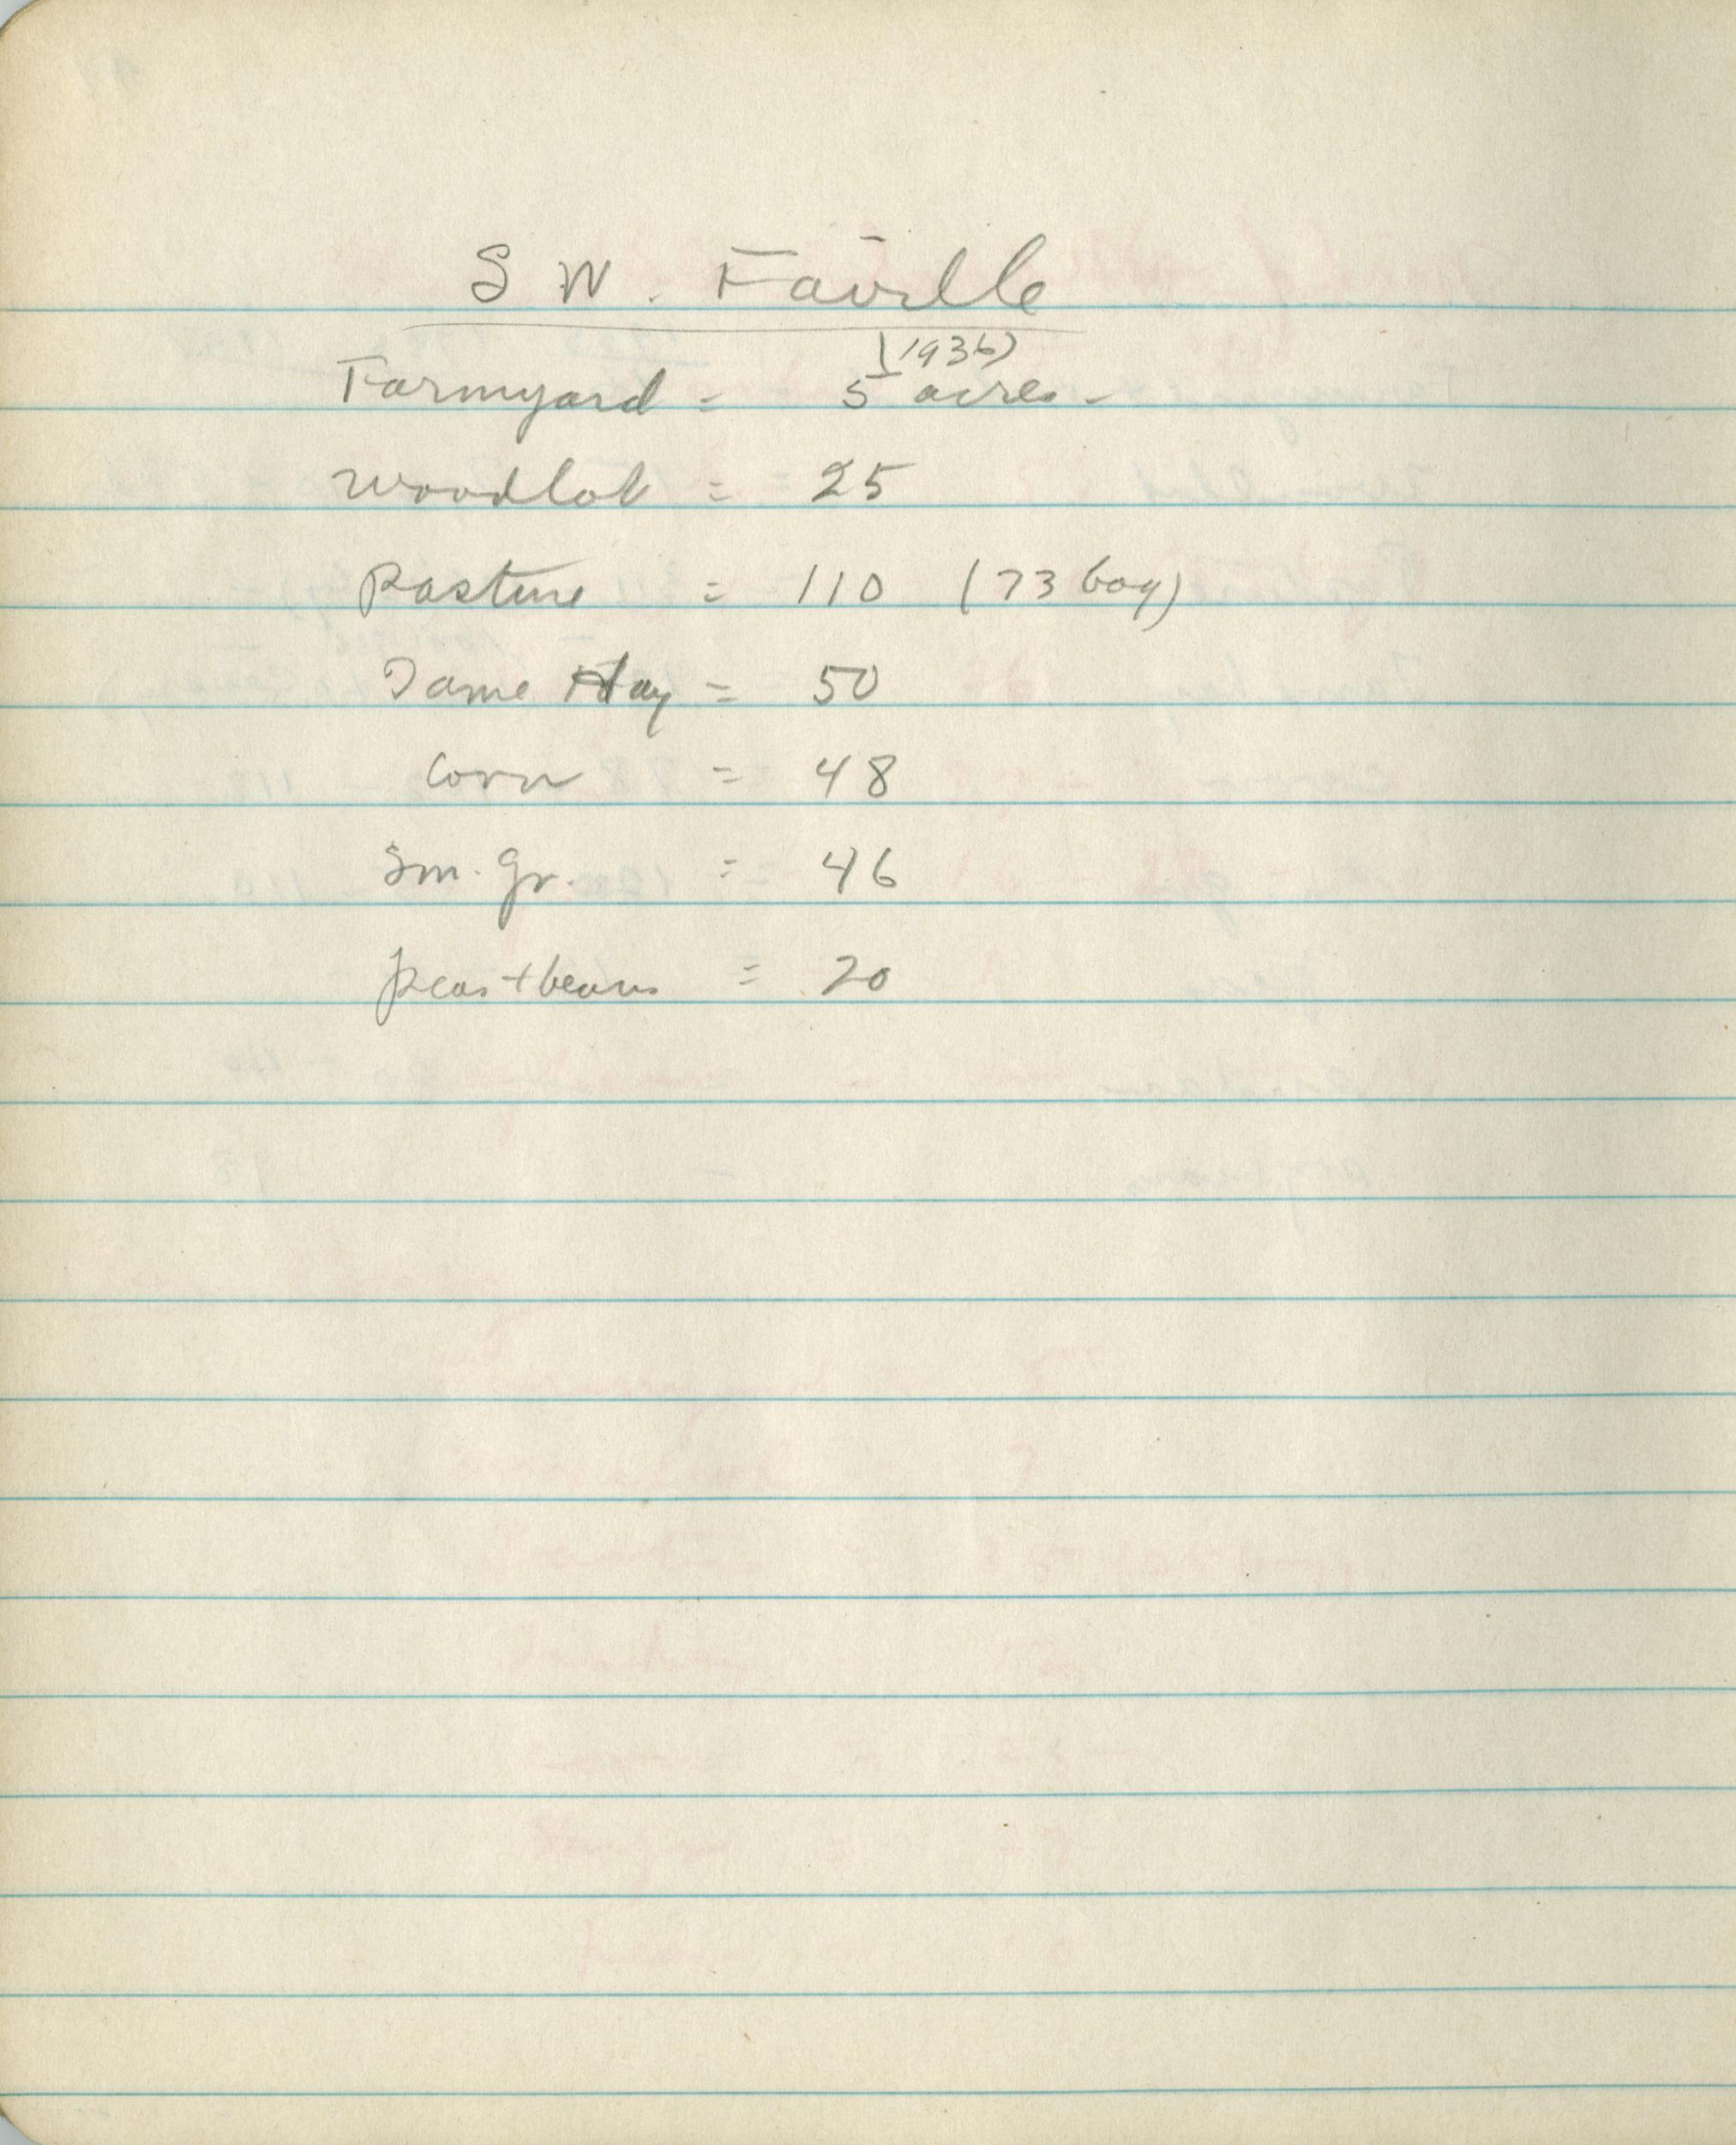 S W. Faville
(1936)
Farmyard = 5 acres -
Woodlot = 25
Pasture = 110 (73 bog)
Tame Hay = 50
Corn = 48
Sm. Gr. = 46
peas + beans = 20